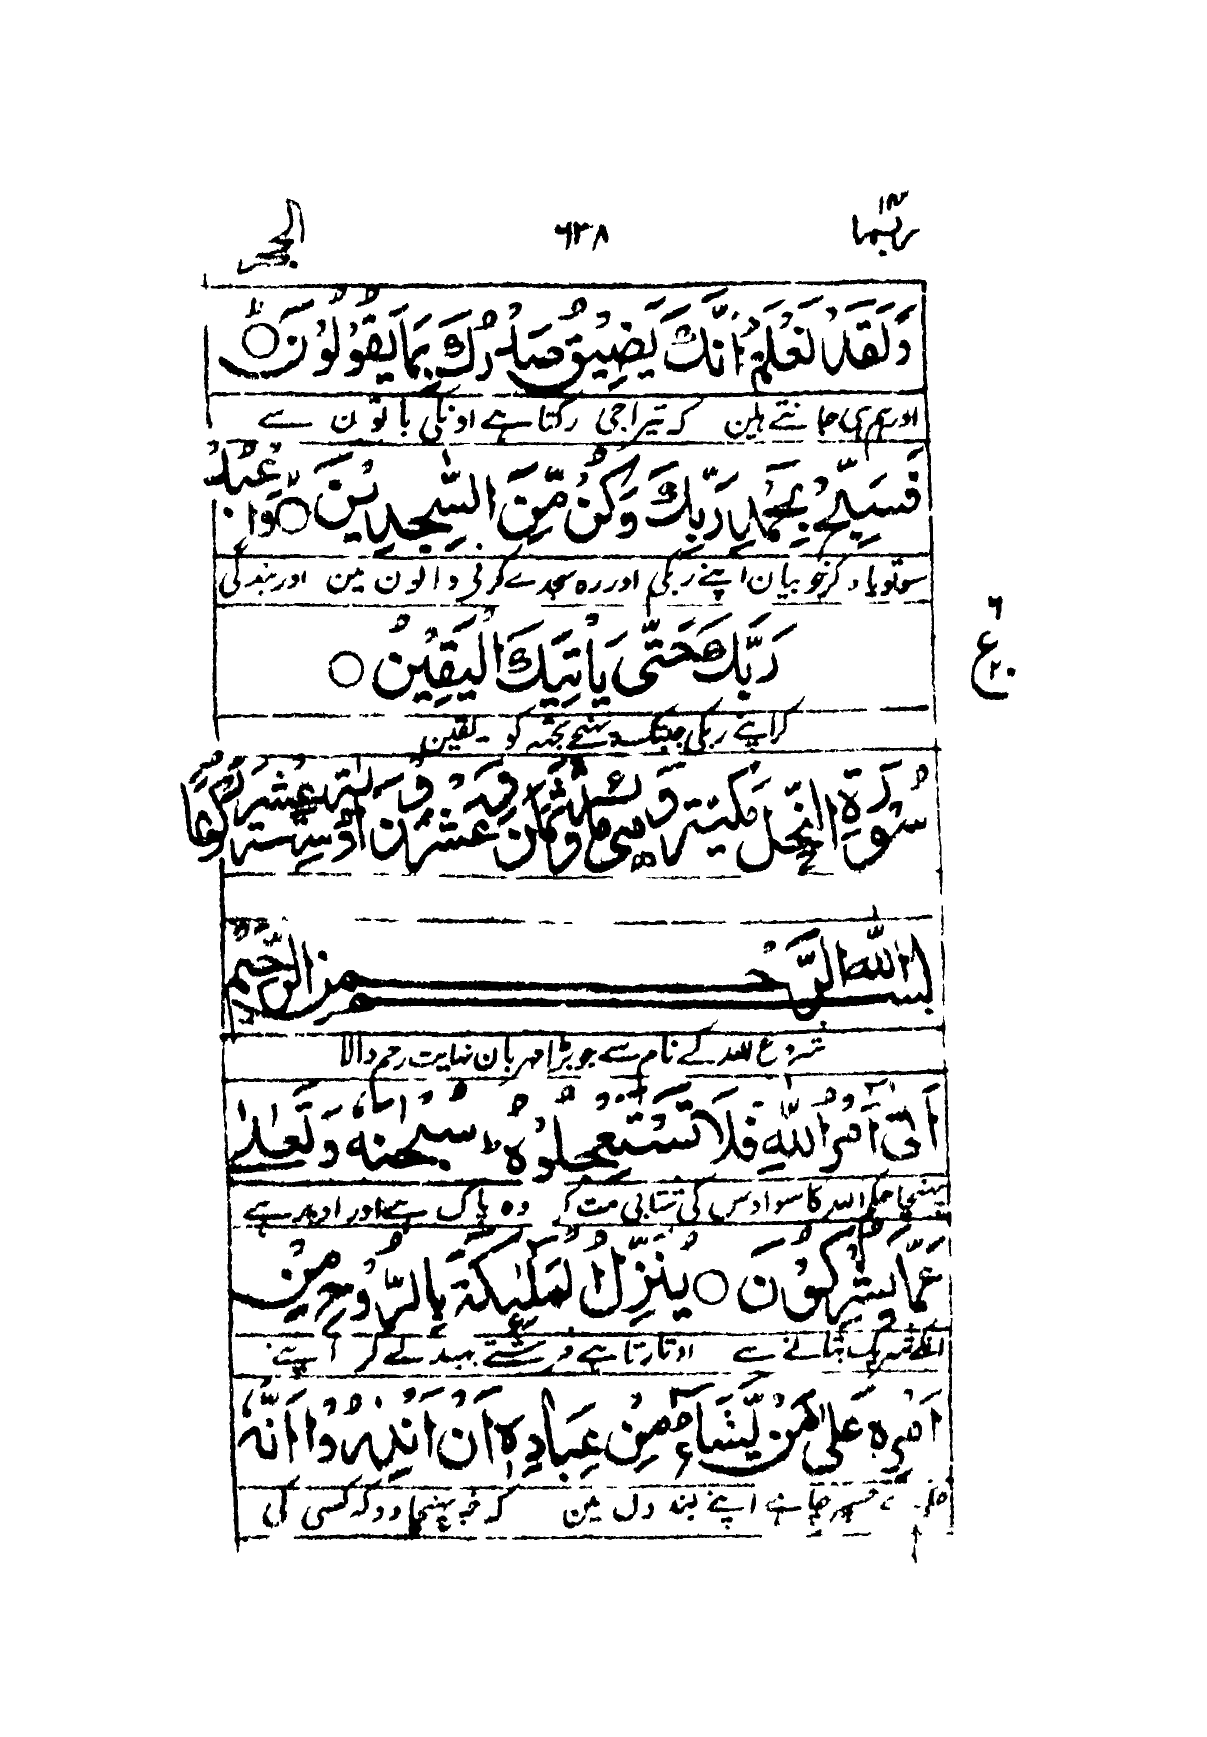 ربما ١٤
٦٣٨
الحجر
وَلَقَدْ نَعْلَمُ اَنَّكَ يَضِيْقُ صَدْرُكَ بِمَا يَقُوْلُوْنَ ۙ
اور ہم ہی جانتے ہین کہ تیرا جی رکتا ہے اونکی باتون سے
فَسَبِّحْ بِحَمْدِ رَبِّكَ وَكُنْ مِّنَ السّٰجِدِيْنَ ۙ وَاعْبُدْ
سو تو یاد کر خوبیان اپنے رب کی اور رہ سجدے کرنی والون مین اور بندگی
رَبَّكَ حَتّٰى يَاْتِيَكَ الْيَقِيْنُ ○
٦
ع
٢٠
کر اپنے رب کی جبتک پہنچے تجہہ کو یقین
سُوْرَةُ النَّحْلِ مَكِّيَّةٌ وَهِيَ مِائَةٌ وَثَمَانٌ وَعِشْرُوْنَ اٰيَةً وَسِتَّةَ عَشَرَ رُكُوْعًا
بِسْمِ اللّٰهِ الرَّحْمٰنِ الرَّحِيْمِ
شروع اللہ کے نام سے جو بڑا مہربان نہایت رحم والا
اَتٰٓى اَمْرُ اللّٰهِ فَلَا تَسْتَعْجِلُوْهُ ؕ سُبْحٰنَهٗ وَتَعٰلٰى
پہنچا حکم اللہ کا سو اوس کی شتابی مت کر وہ پاک ہے اور اوپر ہے
عَمَّا يُشْرِكُوْنَ ○ يُنَزِّلُ الْمَلٰٓئِكَةَ بِالرُّوْحِ مِنْ
انکے شریک بتانے سے اوتارتا ہے فرشتے بھید لے کر اپنے
اَمْرِهٖ عَلٰى مَنْ يَّشَآءُ مِنْ عِبَادِهٖٓ اَنْ اَنْذِرُوْٓا اَنَّهٗ
حکم سے جسپر چاہے اپنے بندون مین کہ خبر پہنچا دو کہ کسی کی